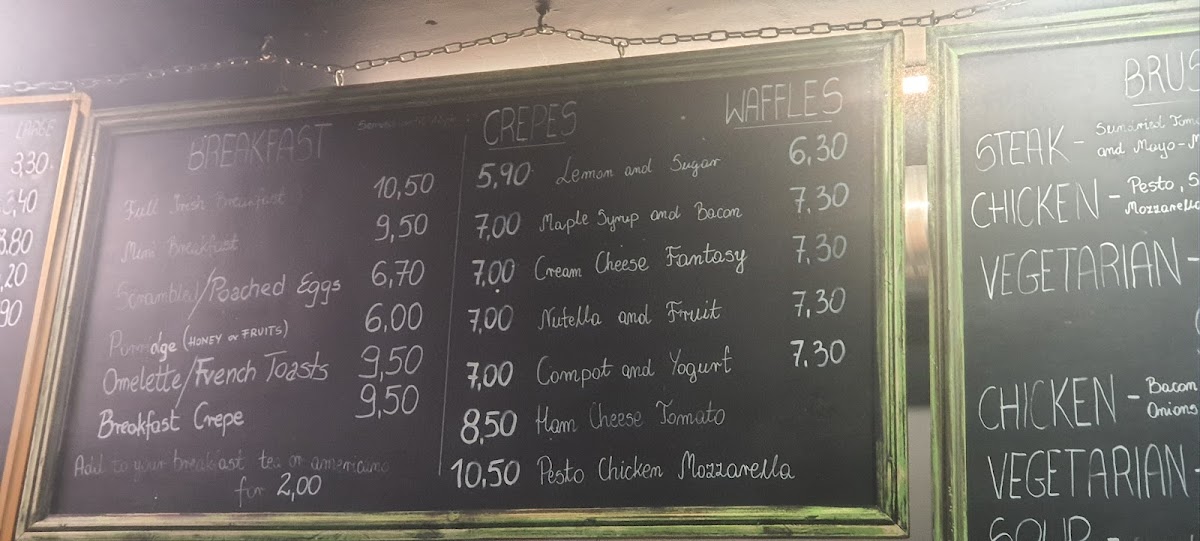 LARGE
3,30
3,40
3.80
,20
90
BREAKFAST
Full Irish Breakfast 10,50
Mini Breakfast 9,50
Scrambled/Poached Eggs 6,70
Porridge (HONEY or FRUITS) 6,00
Omelette/French Toasts 9,50
Breakfast Crepe 9,50
Add to your breakfast tea or americano
for 2,00
CREPES WAFFLES
5,90 Lemon and Sugar 6,30
7,00 Maple Syrup and Bacon 7,30
7,00 Cream Cheese Fantasy 7,30
7,00 Nutella and Fruit 7,30
7,00 Compot and Yogurt 7,30
8,50 Ham Cheese Tomato
10,50 Pesto Chicken Mozzarella
BRUS
STEAK - Sundried Toma
and Mayo-M
CHICKEN - Pesto, S
Mozzarella
VEGETARIAN -
CHICKEN - Bacon
Onions
VEGETARIAN -
SOUP -